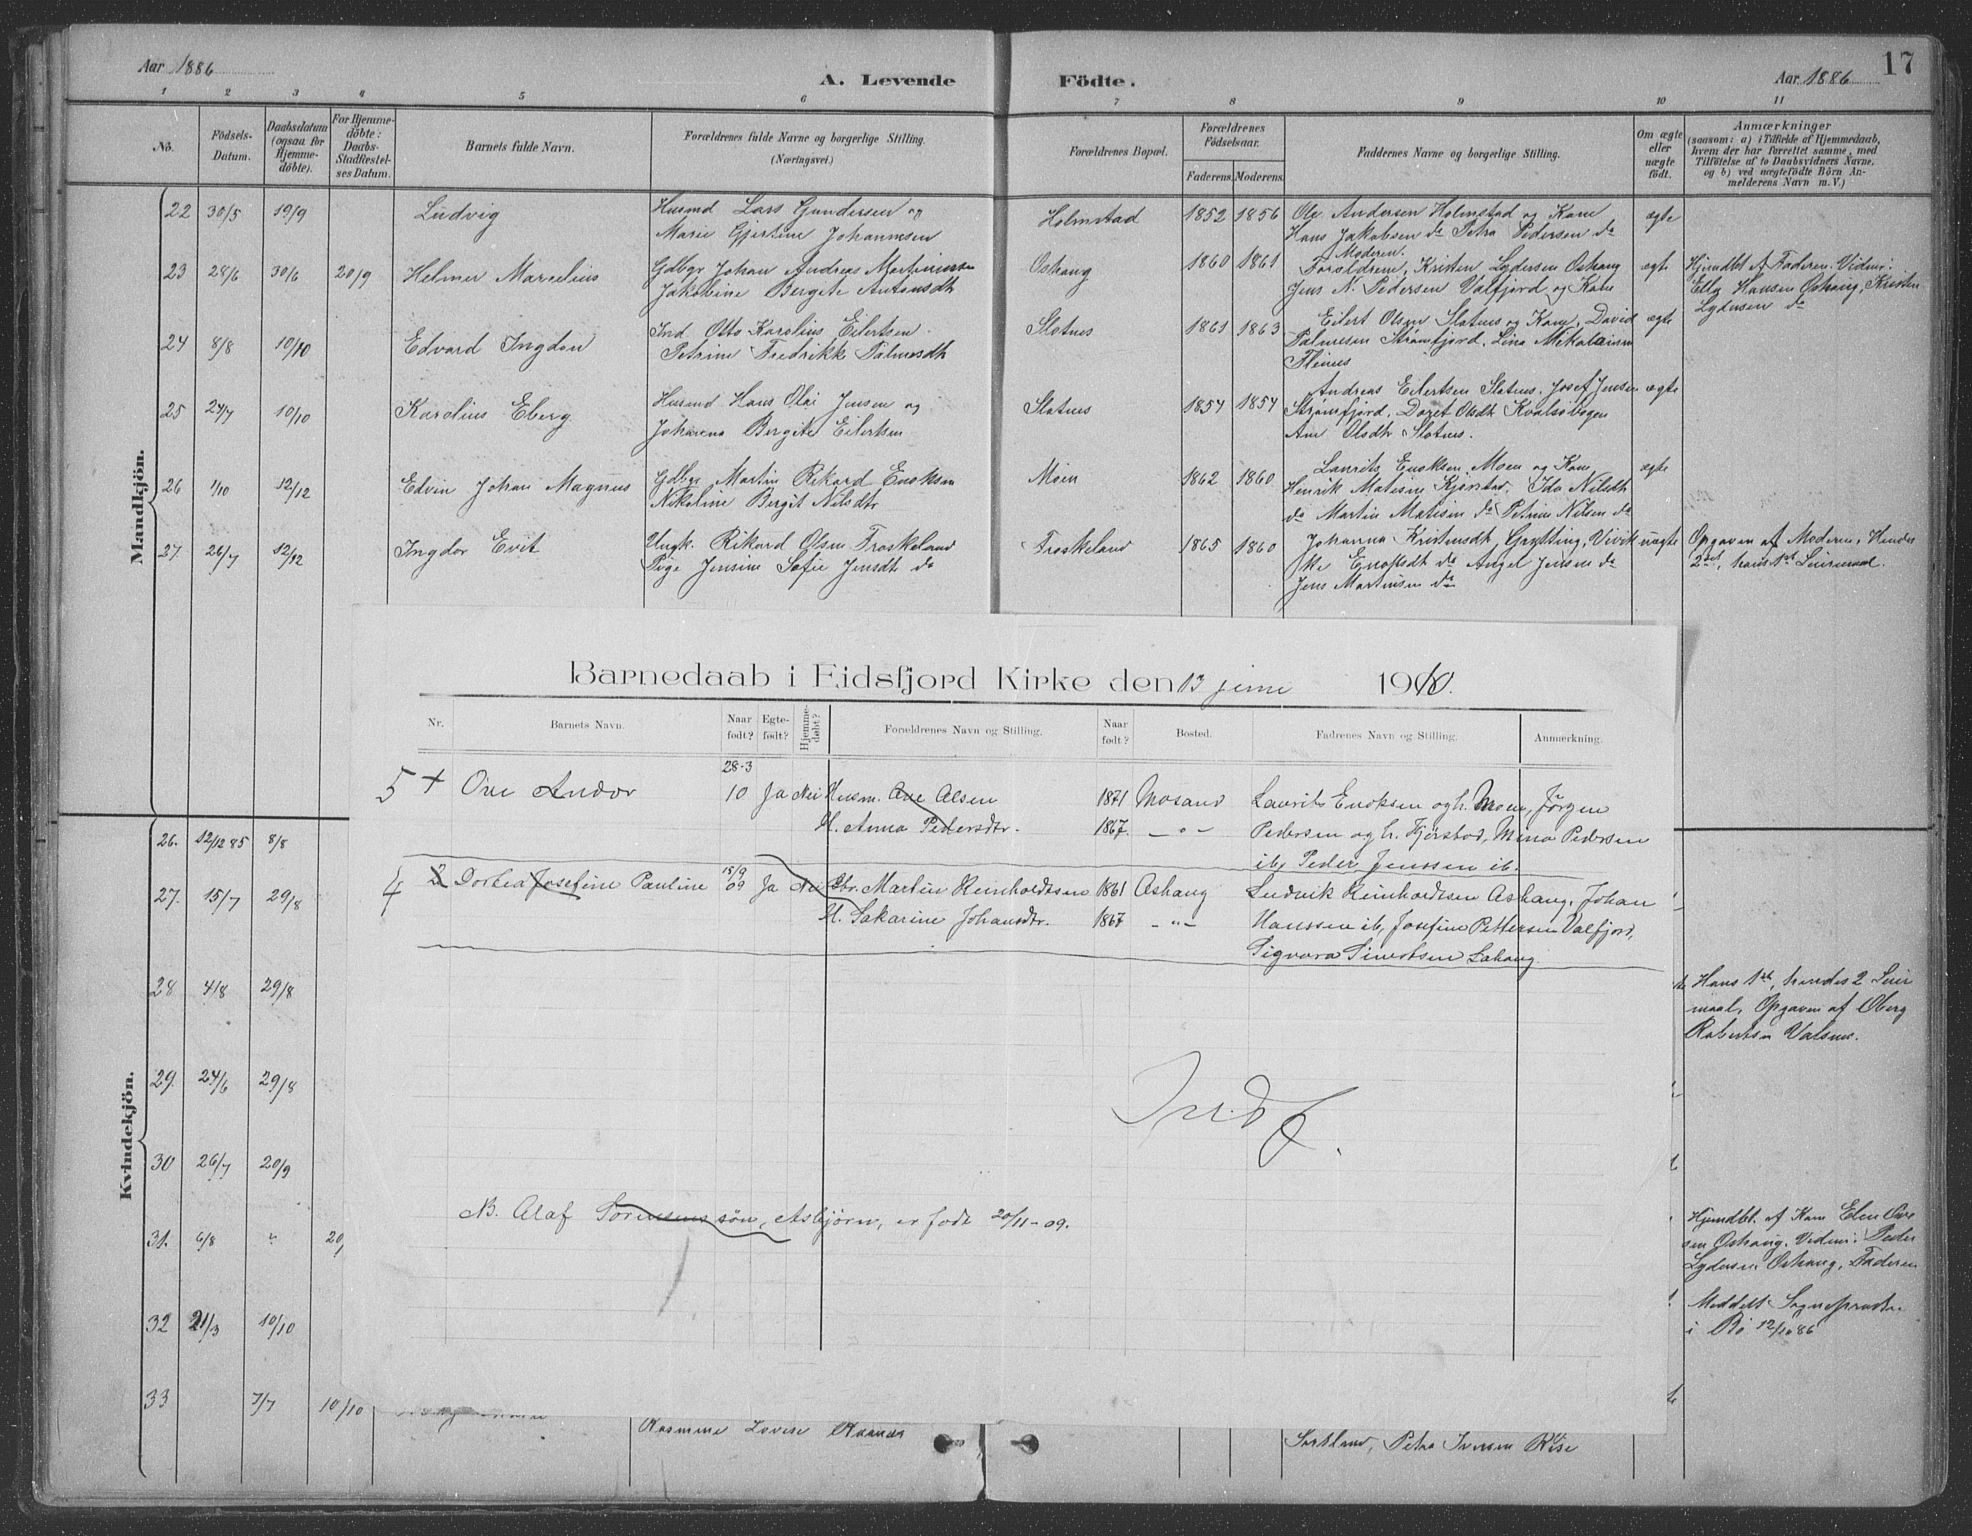 Aar 1886
A. Levende
Födte.
Aar 1886
17
1 2 3 4 5 6 7 8 9 10 11
No.
Födsels-Datum.
Daabsdatum (ogsaa for Hjemme-döbte).
For Hjemme-döbte: Daabs-Stadfæstelses Datum.
Barnets fulde Navn.
Forældrenes fulde Navne og borgerlige Stilling. (Næringsvei.)
Forældrenes Bopæl.
Forældrenes Födselsaar.
Faderens. Moderens.
Faddernes Navne og borgerlige Stilling.
Om ægte eller uægte födt.
Anmærkninger
(saasom: a) i Tilfælde af Hjemmedaab,
hvem der har forrettet samme, med
Tilföielse af to Daabsvidners Navne,
og b) ved uægtefödte Börn An-
melderens Navn m. V.)
Mandkjön.
22 30/5 19/9 Ludvig Husmd Lars Gundersen og Holmstad 1852 1856 Ole Andersen Holmstad og Kone ægte
Marie Gjertine Johannesen Hans Jakobsen do Petra Pedersen do
Moderen.
23 28/6 30/6 20/9 Helmer Marcelius Gdbgr Johan Andreas Oshaug 1860 1861 Forældrene, Kristen Lydersen Oshaug ægte Hjemdbt af Faderen. Vidner:
Jakobine Bergite Antonsdtr Jens N. Pedersen Valfjord og Kone Hansen Oshaug, Kristen
Lydersen do
24 8/8 10/10 Edvard Ingdon Ind Otto Karolius Eilertsen Slotnes 1861 1863 Eilert Olsen Slotnes og Kone, David ægte
Petrine Fredrikke Palmesdtr Palmesen Strømfjord, Lina
25 24/7 10/10 Karolius Eberg Husmd Hans Olai Jensen og Slotnes 1854 1854 Andreas Eilertsen Slotnes, Josef Jensen ægte
Johanna Bergite Eilertsen Strømfjord, Doret Olsdtr
Olsdtr Slotnes.
26 1/10 12/12 Edvin Johan Magnus Gdbgr Martin Rikard Enoksen Moen 1862 1860 Laurits Enoksen Moen og Kone ægte
Nikoline Bergit Nilsdtr Henrik Matisen Kjørstad, Ida Nilsdtr
do Martin Matisen do Petrine Nilsen do
27. 26/7 12/12 Ingdor Evit Ungk. Rikard Olsen Froskeland Froskeland 1865 1860 Johanna Kristensdtr Grytting, uægte Opgaven af Moderen. Hendes
Pige Jensine Sofie Jensdtr do Enoksdtr do Angel Jensen do 2det, hans 1st Leiermaal.
Jens Martinsen do
Barnedaab i Eidsfjord Kirke den 13 juni 1910.
Nr. Barnets Navn. Naar født? Egte-født? Hjemme-døbt? Forældrenes Navn og Stilling. Naar født? Bosted. Fadrenes Navn og Stilling. Anmærkning.
28-3
5 + Ove Andor 10 Ja Nei Husm. Ove Olsen 1871 Mosand Laurits Enoksen og h. Moen, Jørgen
H. Anna Pedersdtr. 1867. – " – Pedersen og h. Kjørstad, Mina Pedersen
ib, Peder Jenssen ib.
4 2 Dortea Josefine Pauline 15/9 09 Ja Nei Gbr. Martin Reinholdtsen 1861 Oshaug Ludvik Reinholdtsen Oshaug, Johan
H. Sakarine Johansdtr. 1867 – " – Hanssen ib, Josefine Pettersen Valfjord,
Sigvara
Indf.
NB. Olaf Sørensens søn, Asbjørn, er født 20/11-09.
Kvindekjön.
26. 12/12 85 8/8
27. 15/7 29/8
28 4/8 29/8 Hans 1st, hendes 2 Leier
maal, Opgaven af Oberg
Robertsen Valsnes.
29. 24/6 29/8
30 26/7 20/9
31. 6/8 " 20/ Hjemdbt. af Kone Elen
Oshaug. Vidner: Peder
Lydersen Oshaug, Faderen
32 21/3 10/10 Meddelt Sognepræsten
i Bø 12/10 86
33 7/7 10/10
Rasmine Lovise
Sortland, Petra Iversen Rise